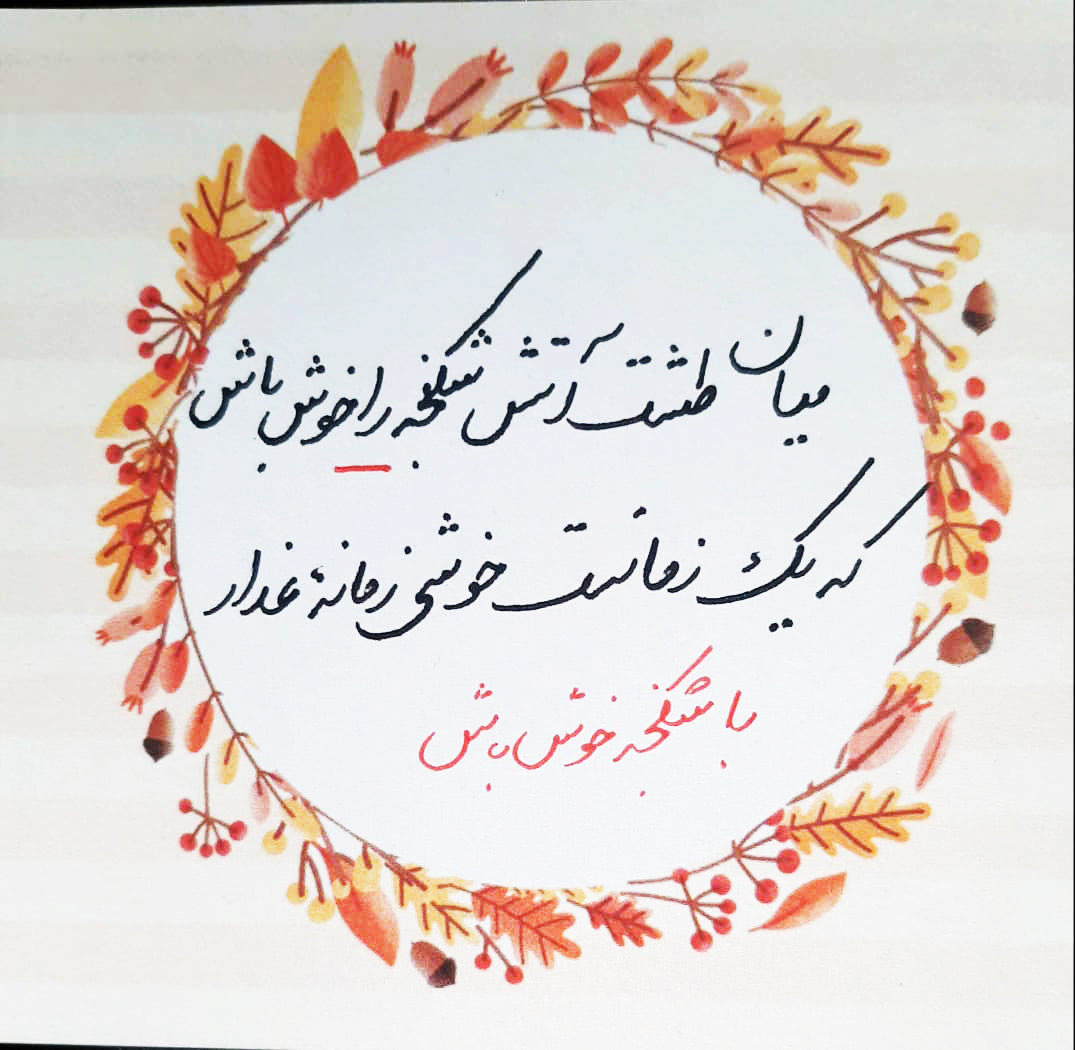 میان طشت آتش شکنجه را خوش باش
که یک زمانست خوشی زمانهٔ غدار
با شکنجه خوش باش